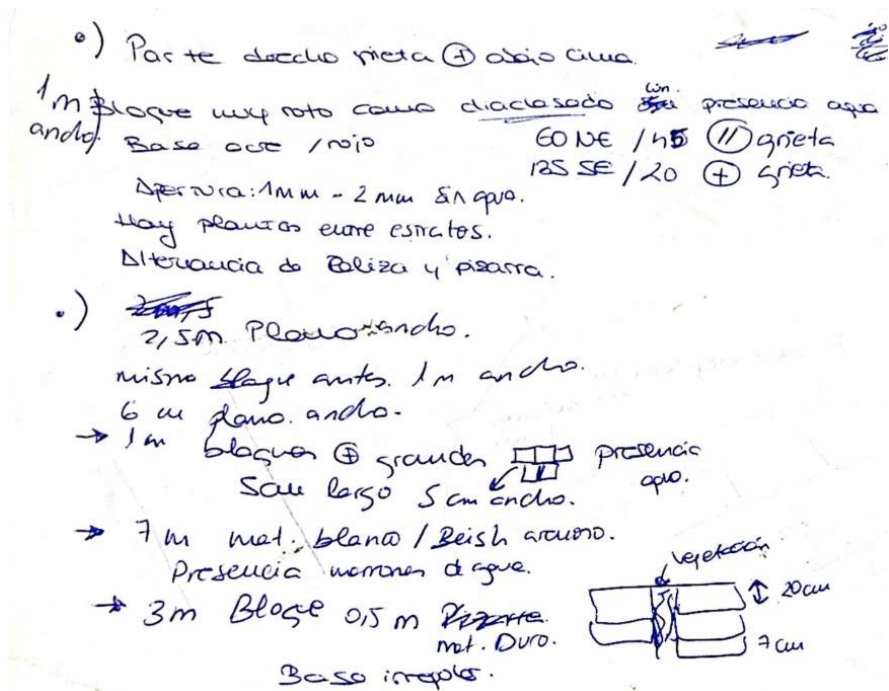 •) Parte derecha grieta ⊕ abajo cima
1m ancho. Bloque muy roto como diaclasado con presencia agua
Base ocre / rojo 60 NE / 45 (//) grieta
135 SE / 20 ⊕ grieta.
Apertura: 1mm - 2 mm sin agua.
Hay plantas entre estratos.
Alternancia de Caliza y pizarra.
•)
2,5m Plano ancho.
mismo bloque antes. 1 m ancho.
6 m plano. ancho.
→ 1m bloques ⊕ grandes presencia agua.
5cm largo 5 cm ancho.
→ 7 m mat. blanco / Beish arenoso.
Presencia marrones de agua.
→ 3m Bloqe 0,5 m
mat. Duro.
vegetación
20cm
7 cm
Base irregular.